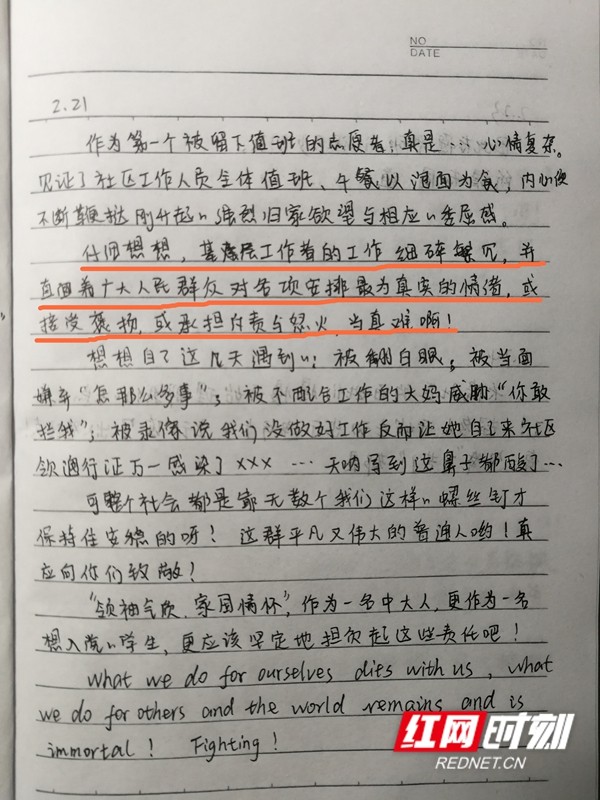 NO
DATE
2.21
作为第一个被留下值班的志愿者,真是…心情复杂。
见证了社区工作人员全体值班、午餐以泡面为食,内心便
不断鞭挞刚升起n强烈归家欲望与相应n委屈感。
仔细想想,基层工作者的工作细碎繁冗,并
直面着广大人民群众对各项安排最为真实的情绪,或
接受褒扬,或承担斥责与怒火,当真难啊!
想想自己这几天遇到n:被翻白眼;被当面
嫌弃“怎那么多事”;被不配合工作的大妈威胁“你敢
拦我”;被录像说我们没做好工作反而让她自己来社区
领通行证万一感染了XXX …天呐写到这鼻子都酸了…
可整个社会都是靠无数个我们这样n螺丝钉才
保持住安稳的呀!这群平凡又伟大的普通人哟!真
应向你们致敬!
“领袖气质、家国情怀”,作为一名中大人,更作为一名
想入党n学生,更应该坚定地担负起这些责任吧!
What we do for ourselves dies with us, what
we do for others and the world remains and is
immortal! Fighting!
红网时刻
REDNET.CN